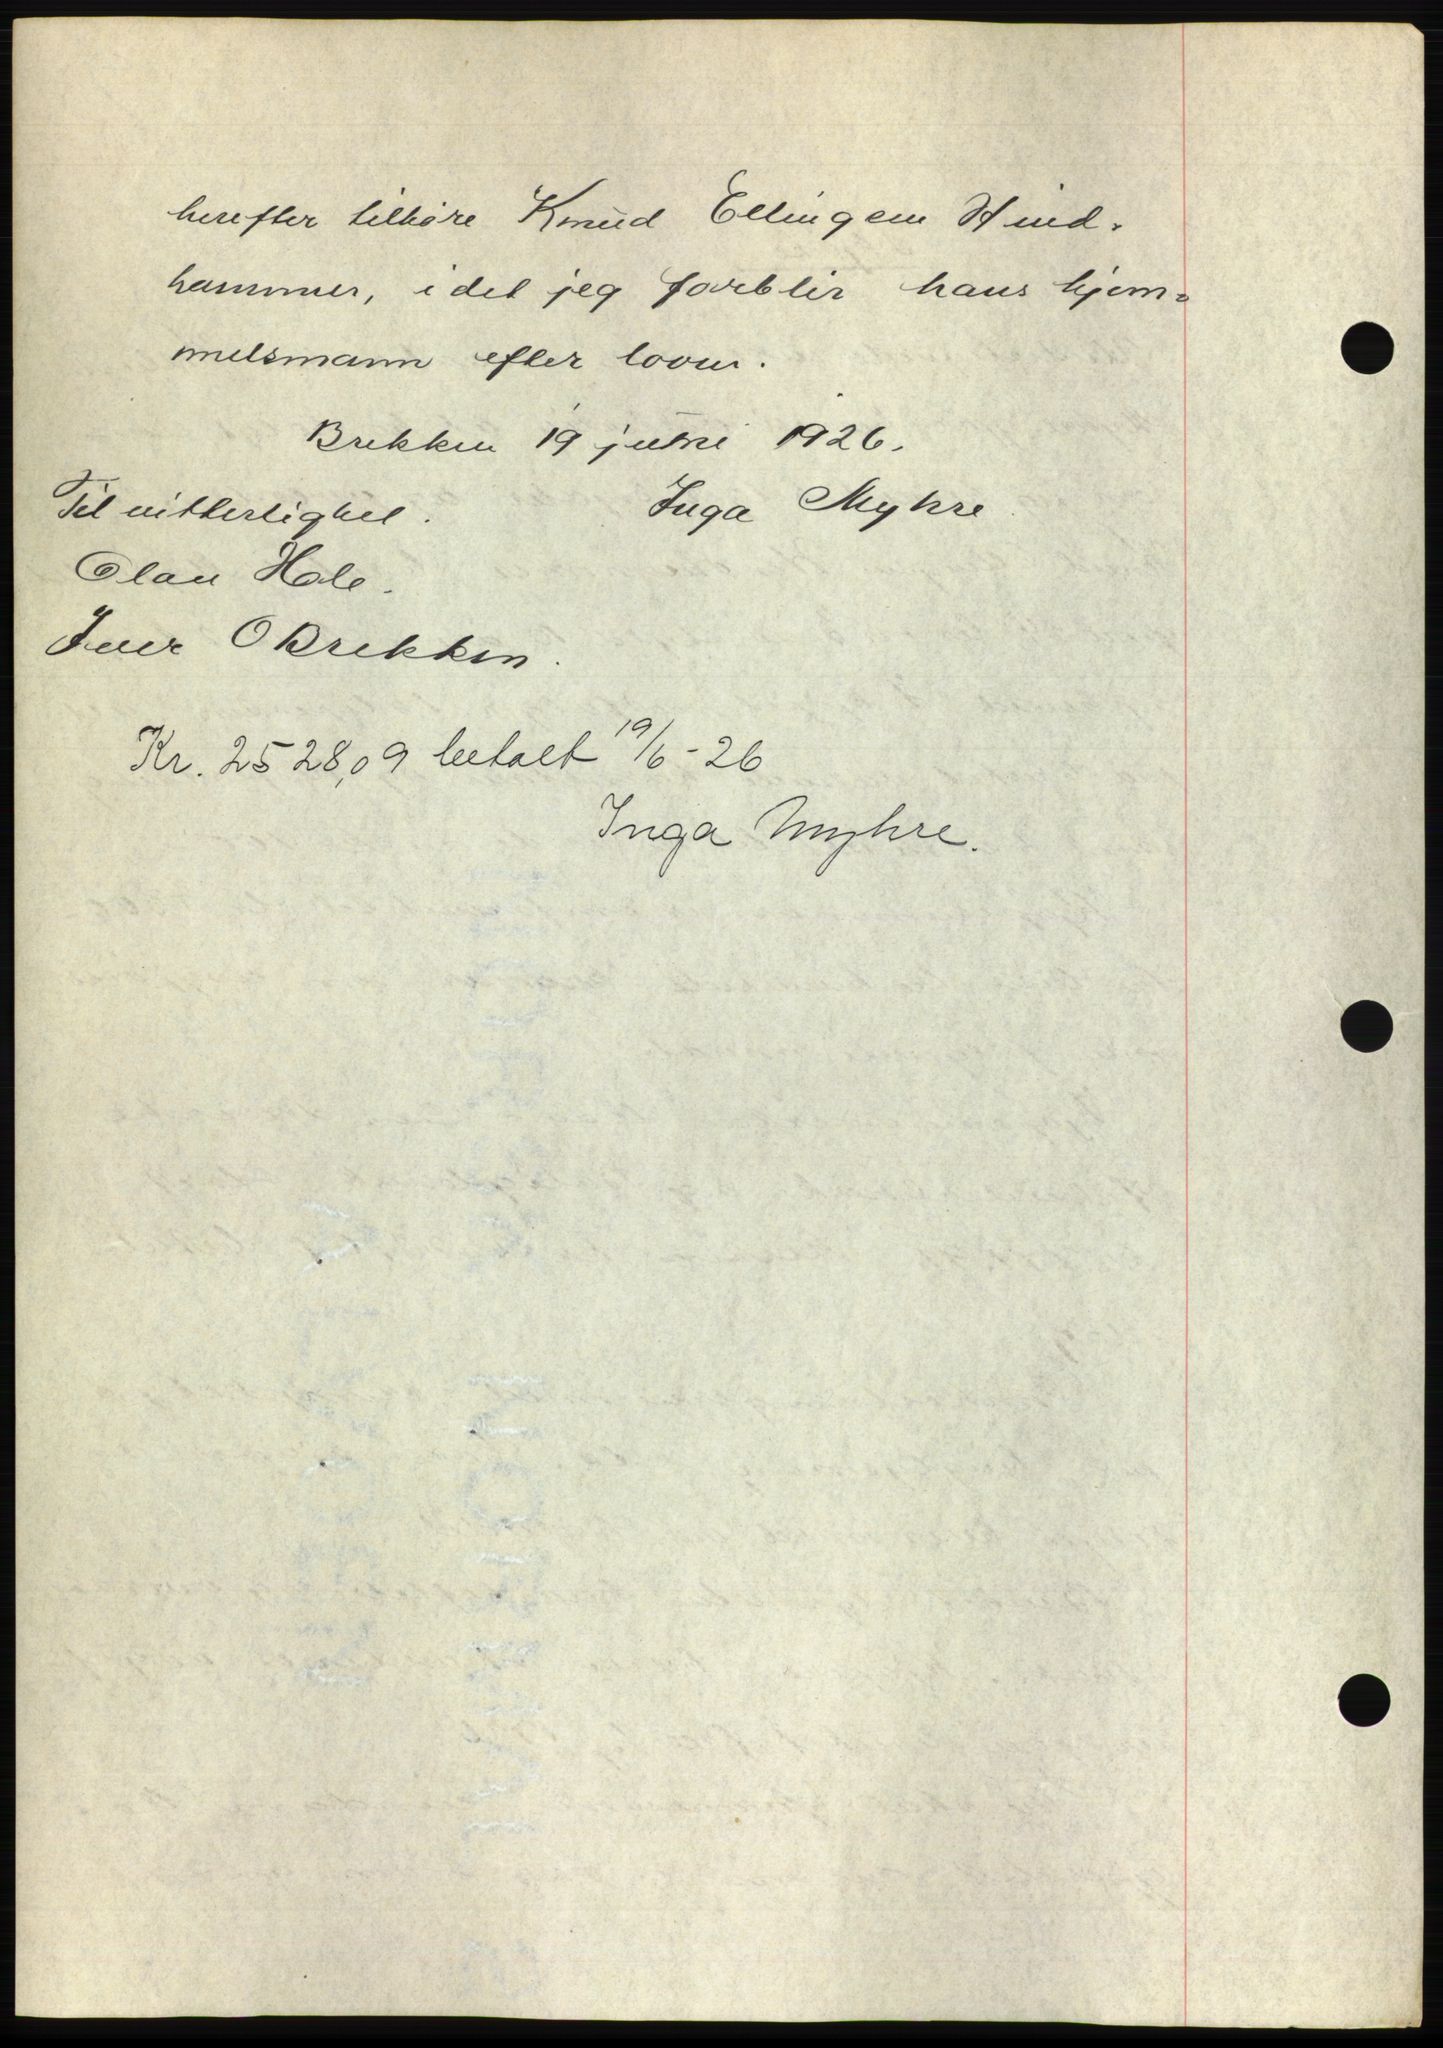 herefter tilhøre Knud Ellingsen Hind-
hammer, i det jeg forblir hans hjem-
melsmann efter loven.
Brekken 19 juni 1926.
Til vitterlighet.
Inga Myhre
Olau Hole.
Iver O Brekken.
Kr. 2528,09 betalt 19/6-26
Inga Myhre.